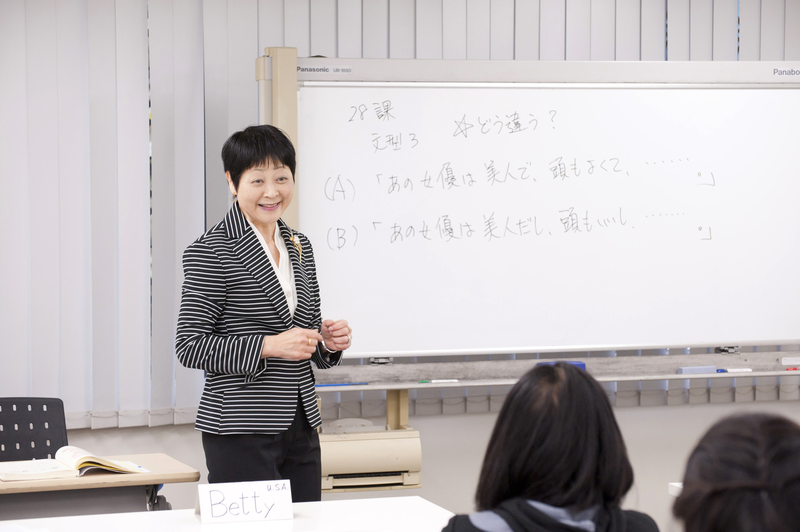 Panasonic
Panabo
28課
文型3 ☆どう違う?
(A)「あの女優は美人で、頭もよくて、…… 。」
(B)「あの女優は美人だし、頭もいいし、…… 。」
Betty USA